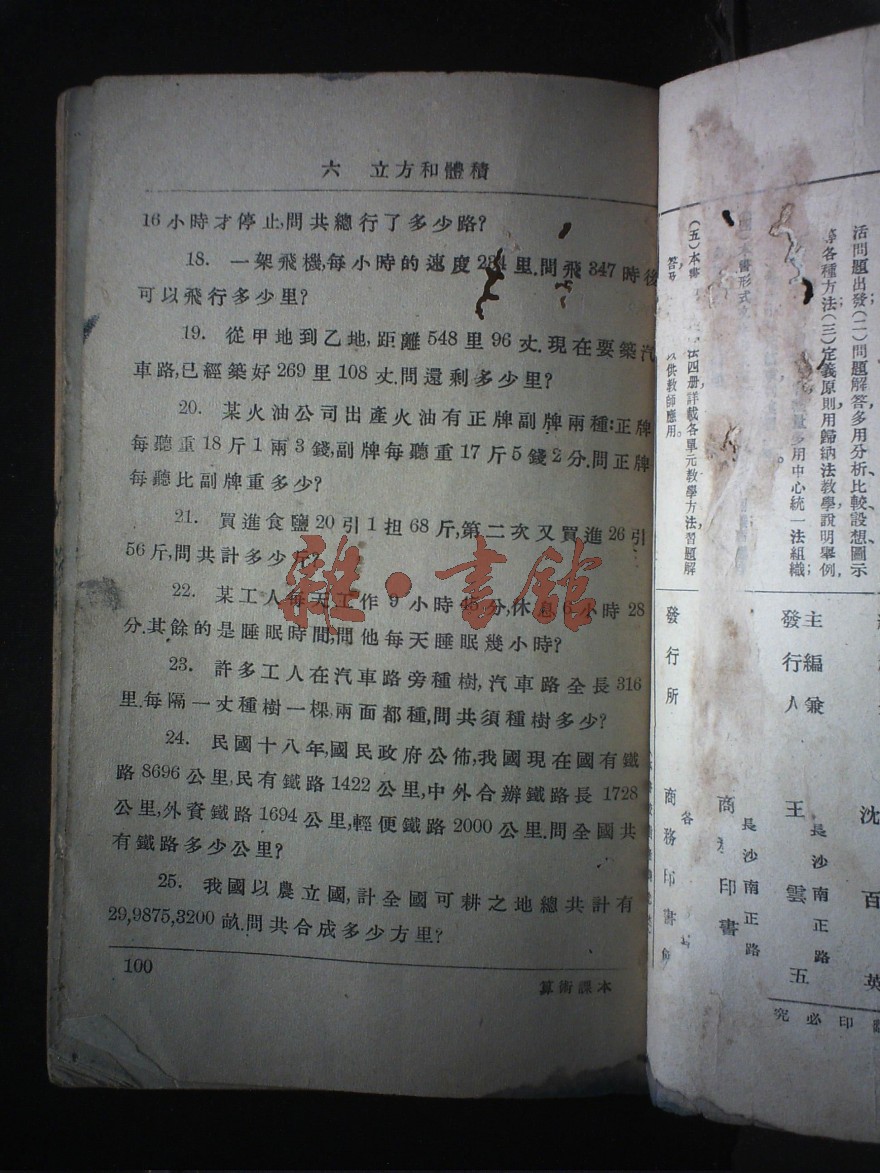 六 立方和體積
16小時才停止,問共總行了多少路?
18. 一架飛機,每小時的速度2 4里.問飛347時後
可以飛行多少里?
19. 從甲地到乙地,距離548里96丈.現在要築汽
車路,已經築好269里108丈.問還剩多少里?
20. 某火油公司出產火油有正牌副牌兩種:正牌
每聽重18斤1兩3錢,副牌每聽重17斤5錢2分.問正牌
每聽比副牌重多少?
21. 買進食鹽20引1担68斤,第二次又買進26引
56斤,問共計多少斤?
22. 某工人每天工作9小時45分,休息6小時28
分.其餘的是睡眠時間,問他每天睡眠幾小時?
23. 許多工人在汽車路旁種樹,汽車路全長316
里.每隔一丈種樹一棵,兩面都種,問共須種樹多少?
24. 民國十八年,國民政府公佈,我國現在國有鐵
路8696公里,民有鐵路1422公里,中外合辦鐵路長1728
公里,外資鐵路1694公里,輕便鐵路2000公里.問全國共
有鐵路多少公里?
25. 我國以農立國,計全國可耕之地總共計有
29,9875,3200畝.問共合成多少方里?
100
算術課本
雜·書館
活問題出發(二)問題解答多用分析、比較、設想、圖示
等各種方法(三)定義原則用歸納法教學說明舉例,
量多用中心統一法組織
書形式
(五)本書
法四册詳載各單元教學方法,習題解
答
以供教師應用。
沈百英
主編兼
發行人
王雲五
長沙南正路
商 印書
長沙南正路
發行所
商務印書館
各
印必究